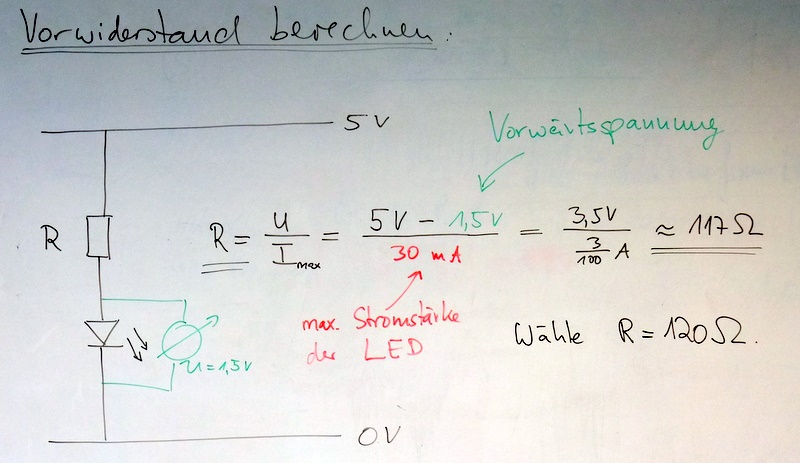 Vorwiderstand berechnen:
5V
Vorwärtsspannung
R
R = U / I max = 5V - 1,5V / 30 mA = 3,5V / 3/100 A ≈ 117Ω
max. Stromstärke
der LED
U = 1,5V
Wähle R = 120Ω.
0V